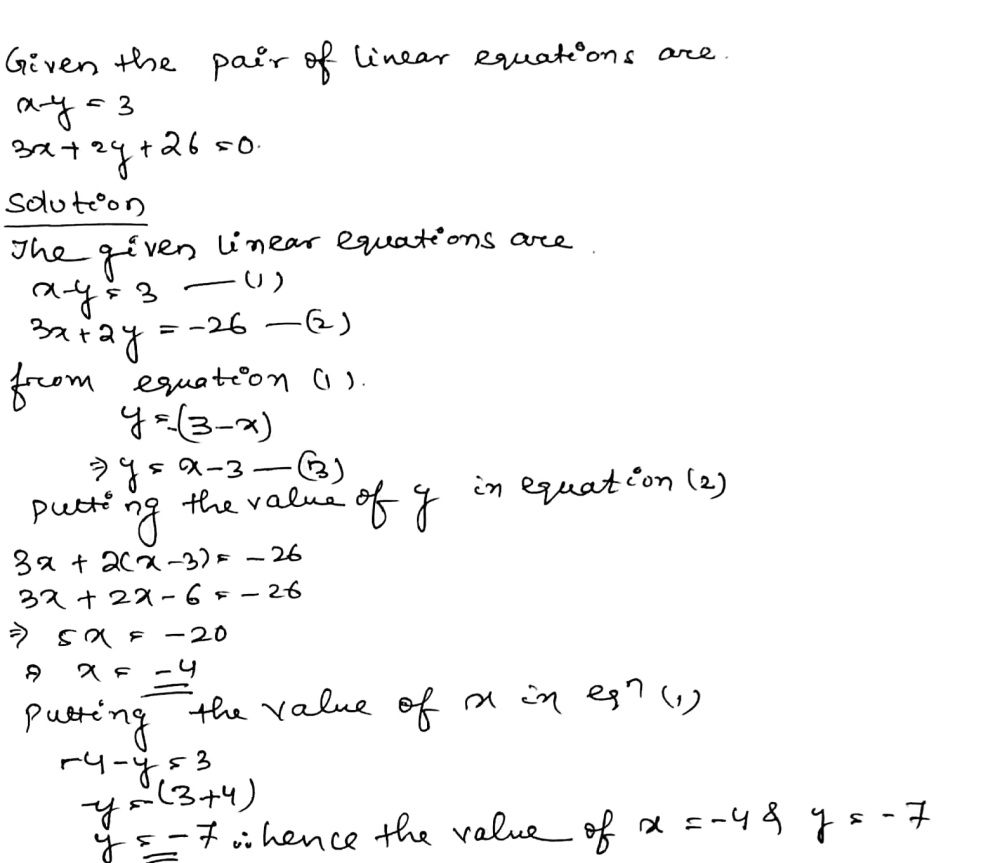 Given the pair of linear equations are.
x-y = 3
3x+2y+26 =0.
Solution
The given linear equations are.
x-y=3 —(1)
3x+2y = -26 —(2)
from equation (1).
y=-(3-x)
⇒ y = x-3 —(3)
putting the value of y in equation (2)
3x + 2(x-3) = -26
3x + 2x - 6 = -26
⇒ 5x = -20
⇒ x = -4
putting the value of x in eqn (1)
-4-y=3
-y=(3+4)
y = -7 ∴ hence the value of x =-4 & y = -7